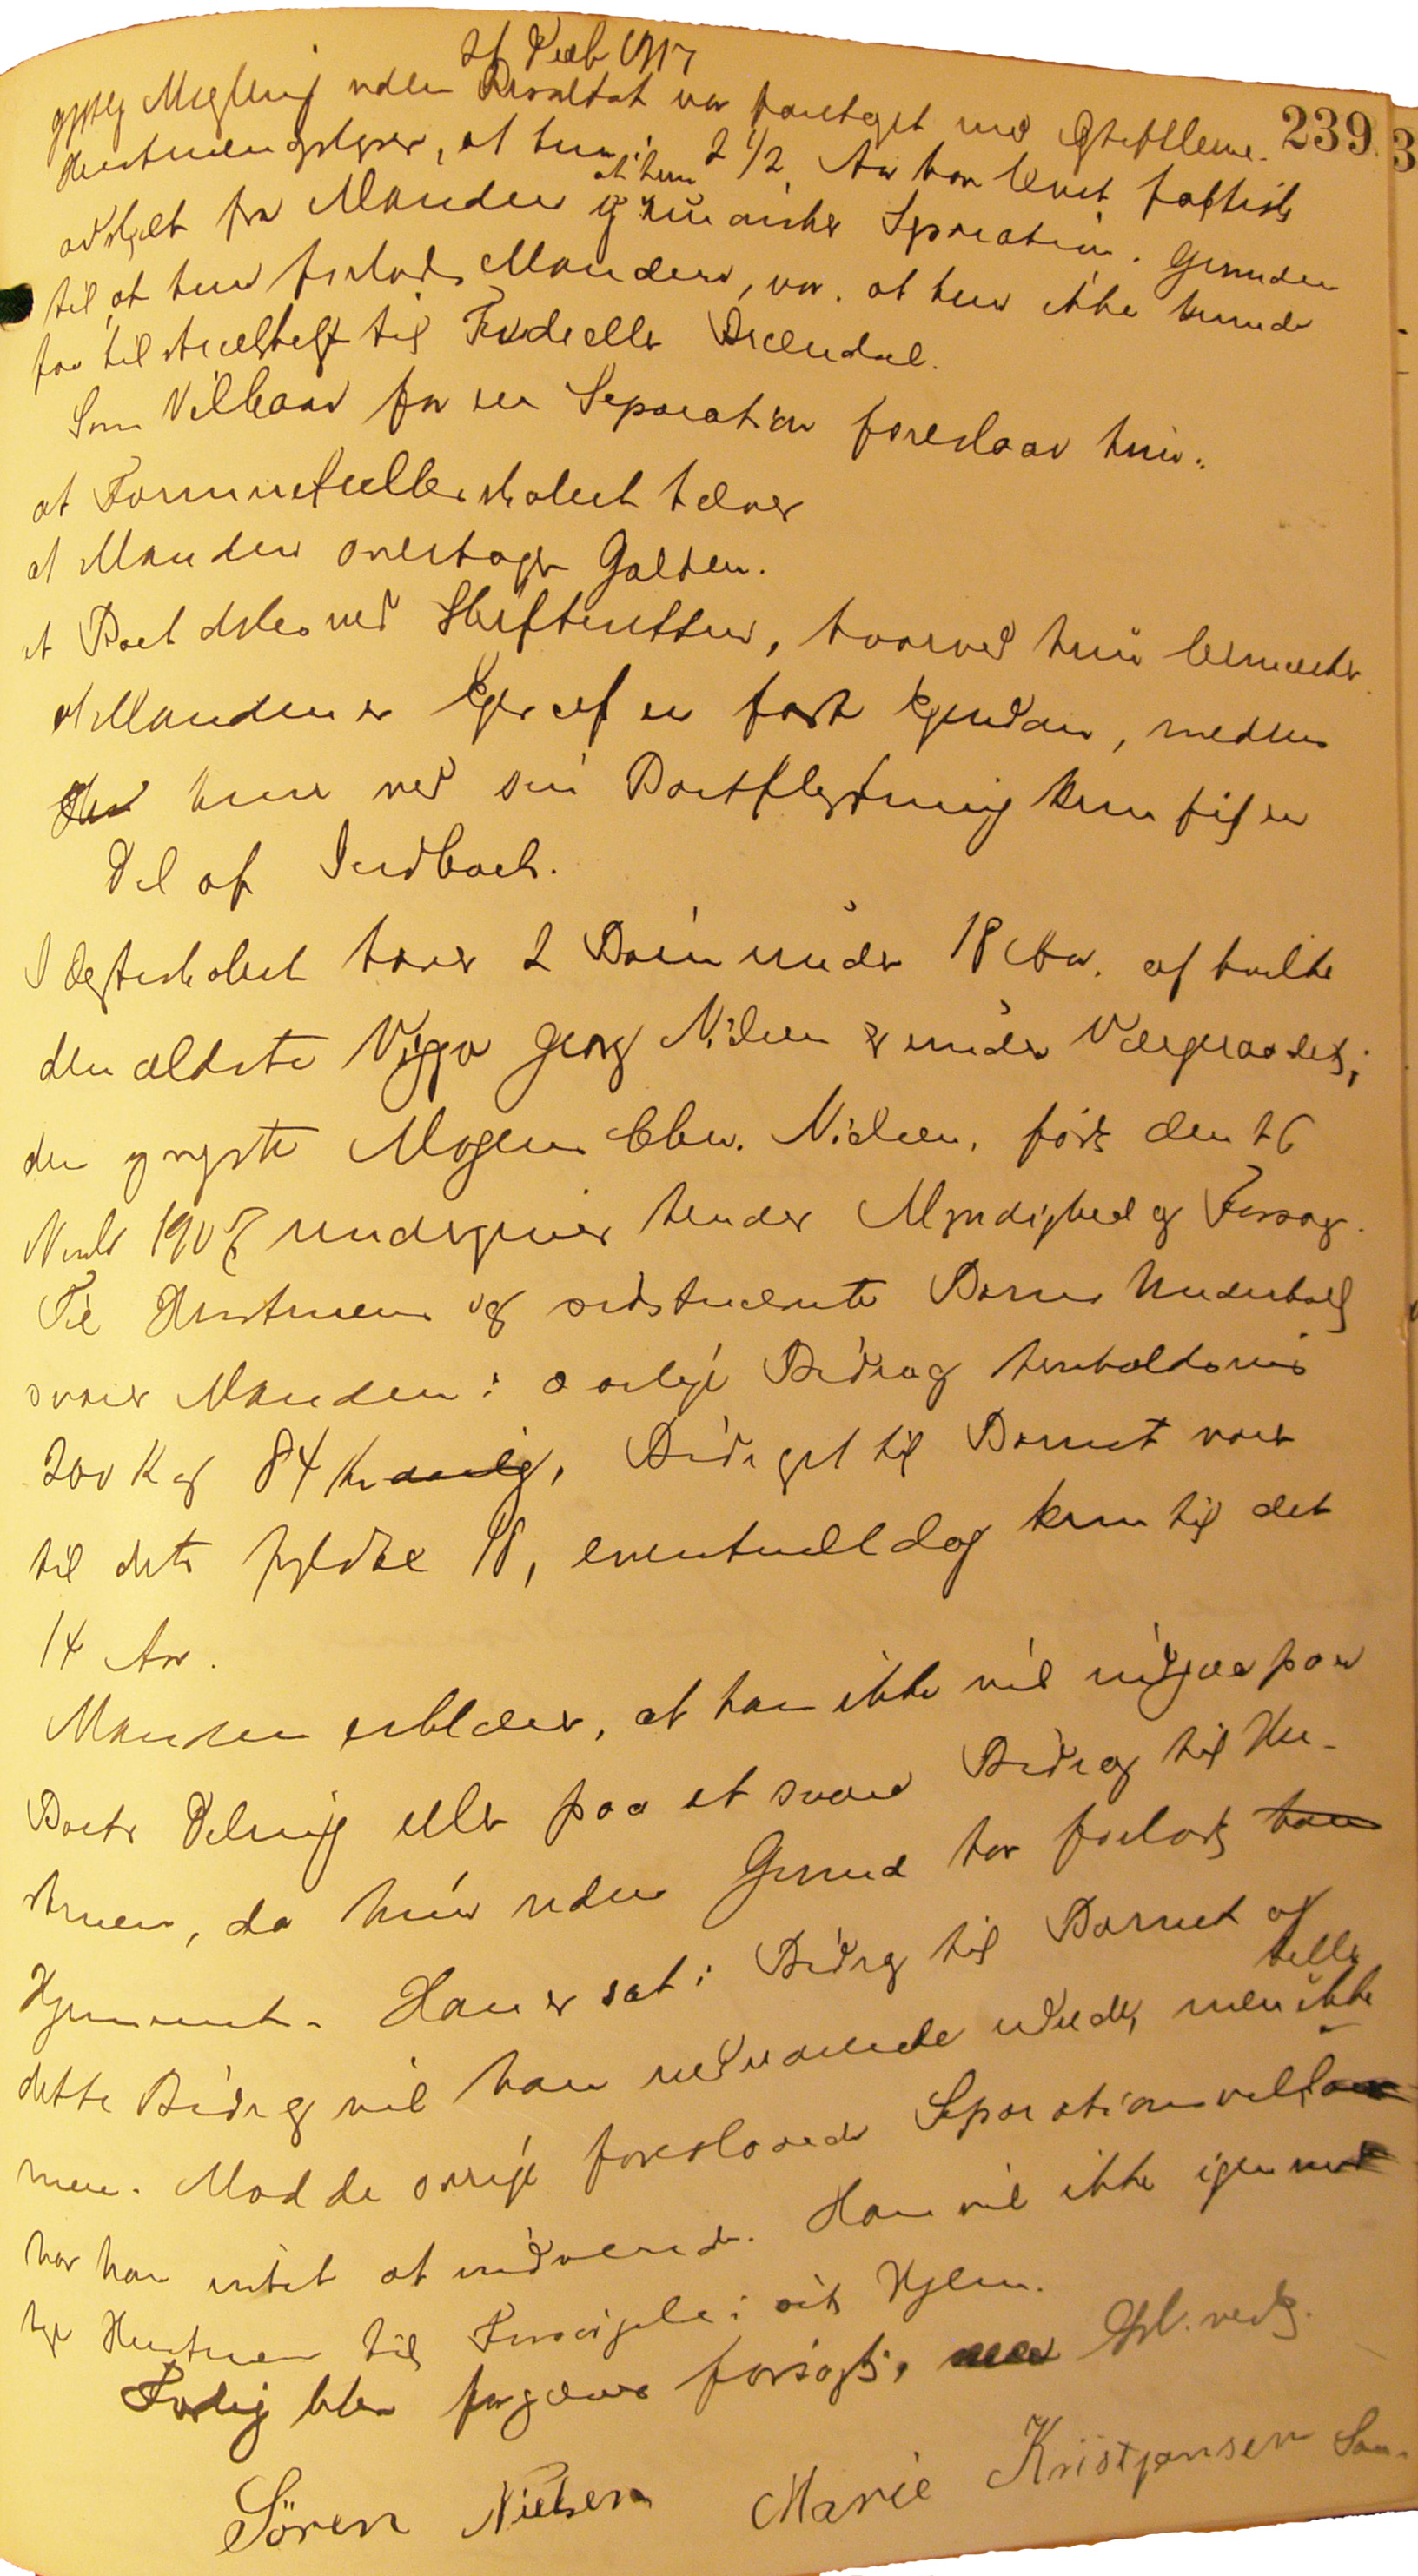 21 Decb 1917
gjstlig Mægling uden Resultat var foretaget med Ægtefællerne. 239
Hustruen oplyser, at hun i 2 1/2 Aar har levet faktisk
adskilt fra Manden og at hun ønsker Separation. Grunden
til, at hun forlod Manden, var, at hun ikke kunde
faa tilstrækkeligt til Føde eller Brændsel.
Som Vilkaar for en Separation foreslaar hun:
at Formuefællesskabet hæves
at Manden overtager Gælden.
at Boet deles ved Skifteretten, hvorved hun bemærker
at Manden er Ejer af en fast Ejendom, medens
hun ved sin Bortflytning kun fik en
Del af Indboet.
I Ægteskabet haves 2 Børn under 18 Aar, af hvilke
den ældste Viggo Georg Nielsen er under Værgeraadet;
den yngste Mogens Chr. Nielsen, født den 26
Novbr 1905 undergives hendes Myndighed og Forsorg.
Til Hustruens og sidstnævnte Barns Underhold
svarer Manden: aarlige Bidrag henholdsvis
200 K og 84 Kr aarlig, Bidraget til Barnet vare
til dets fyldte 18, eventuelt dog kun til det
14 Aar.
Manden erklærer, at han ikke vil indgaa paa
Boets Deling eller paa at svare Bidrag til Hu-
struen, da hun uden Grund har forladt ham
Hjemmet. Han er sat i Bidrag til Barnet og
dette Bidrag vil han vedvarende udrede, men ikke heller
mere. Mod de øvrige foreslaaede Separationsvilkaar
har han intet at indvende. Han vil ikke igen
tage Hustruen til Samvirke i sit Hjem.
Forlig blev forgæves forsøgt, Opl. vedt.
Sören Nielsen Marie Kristjansen